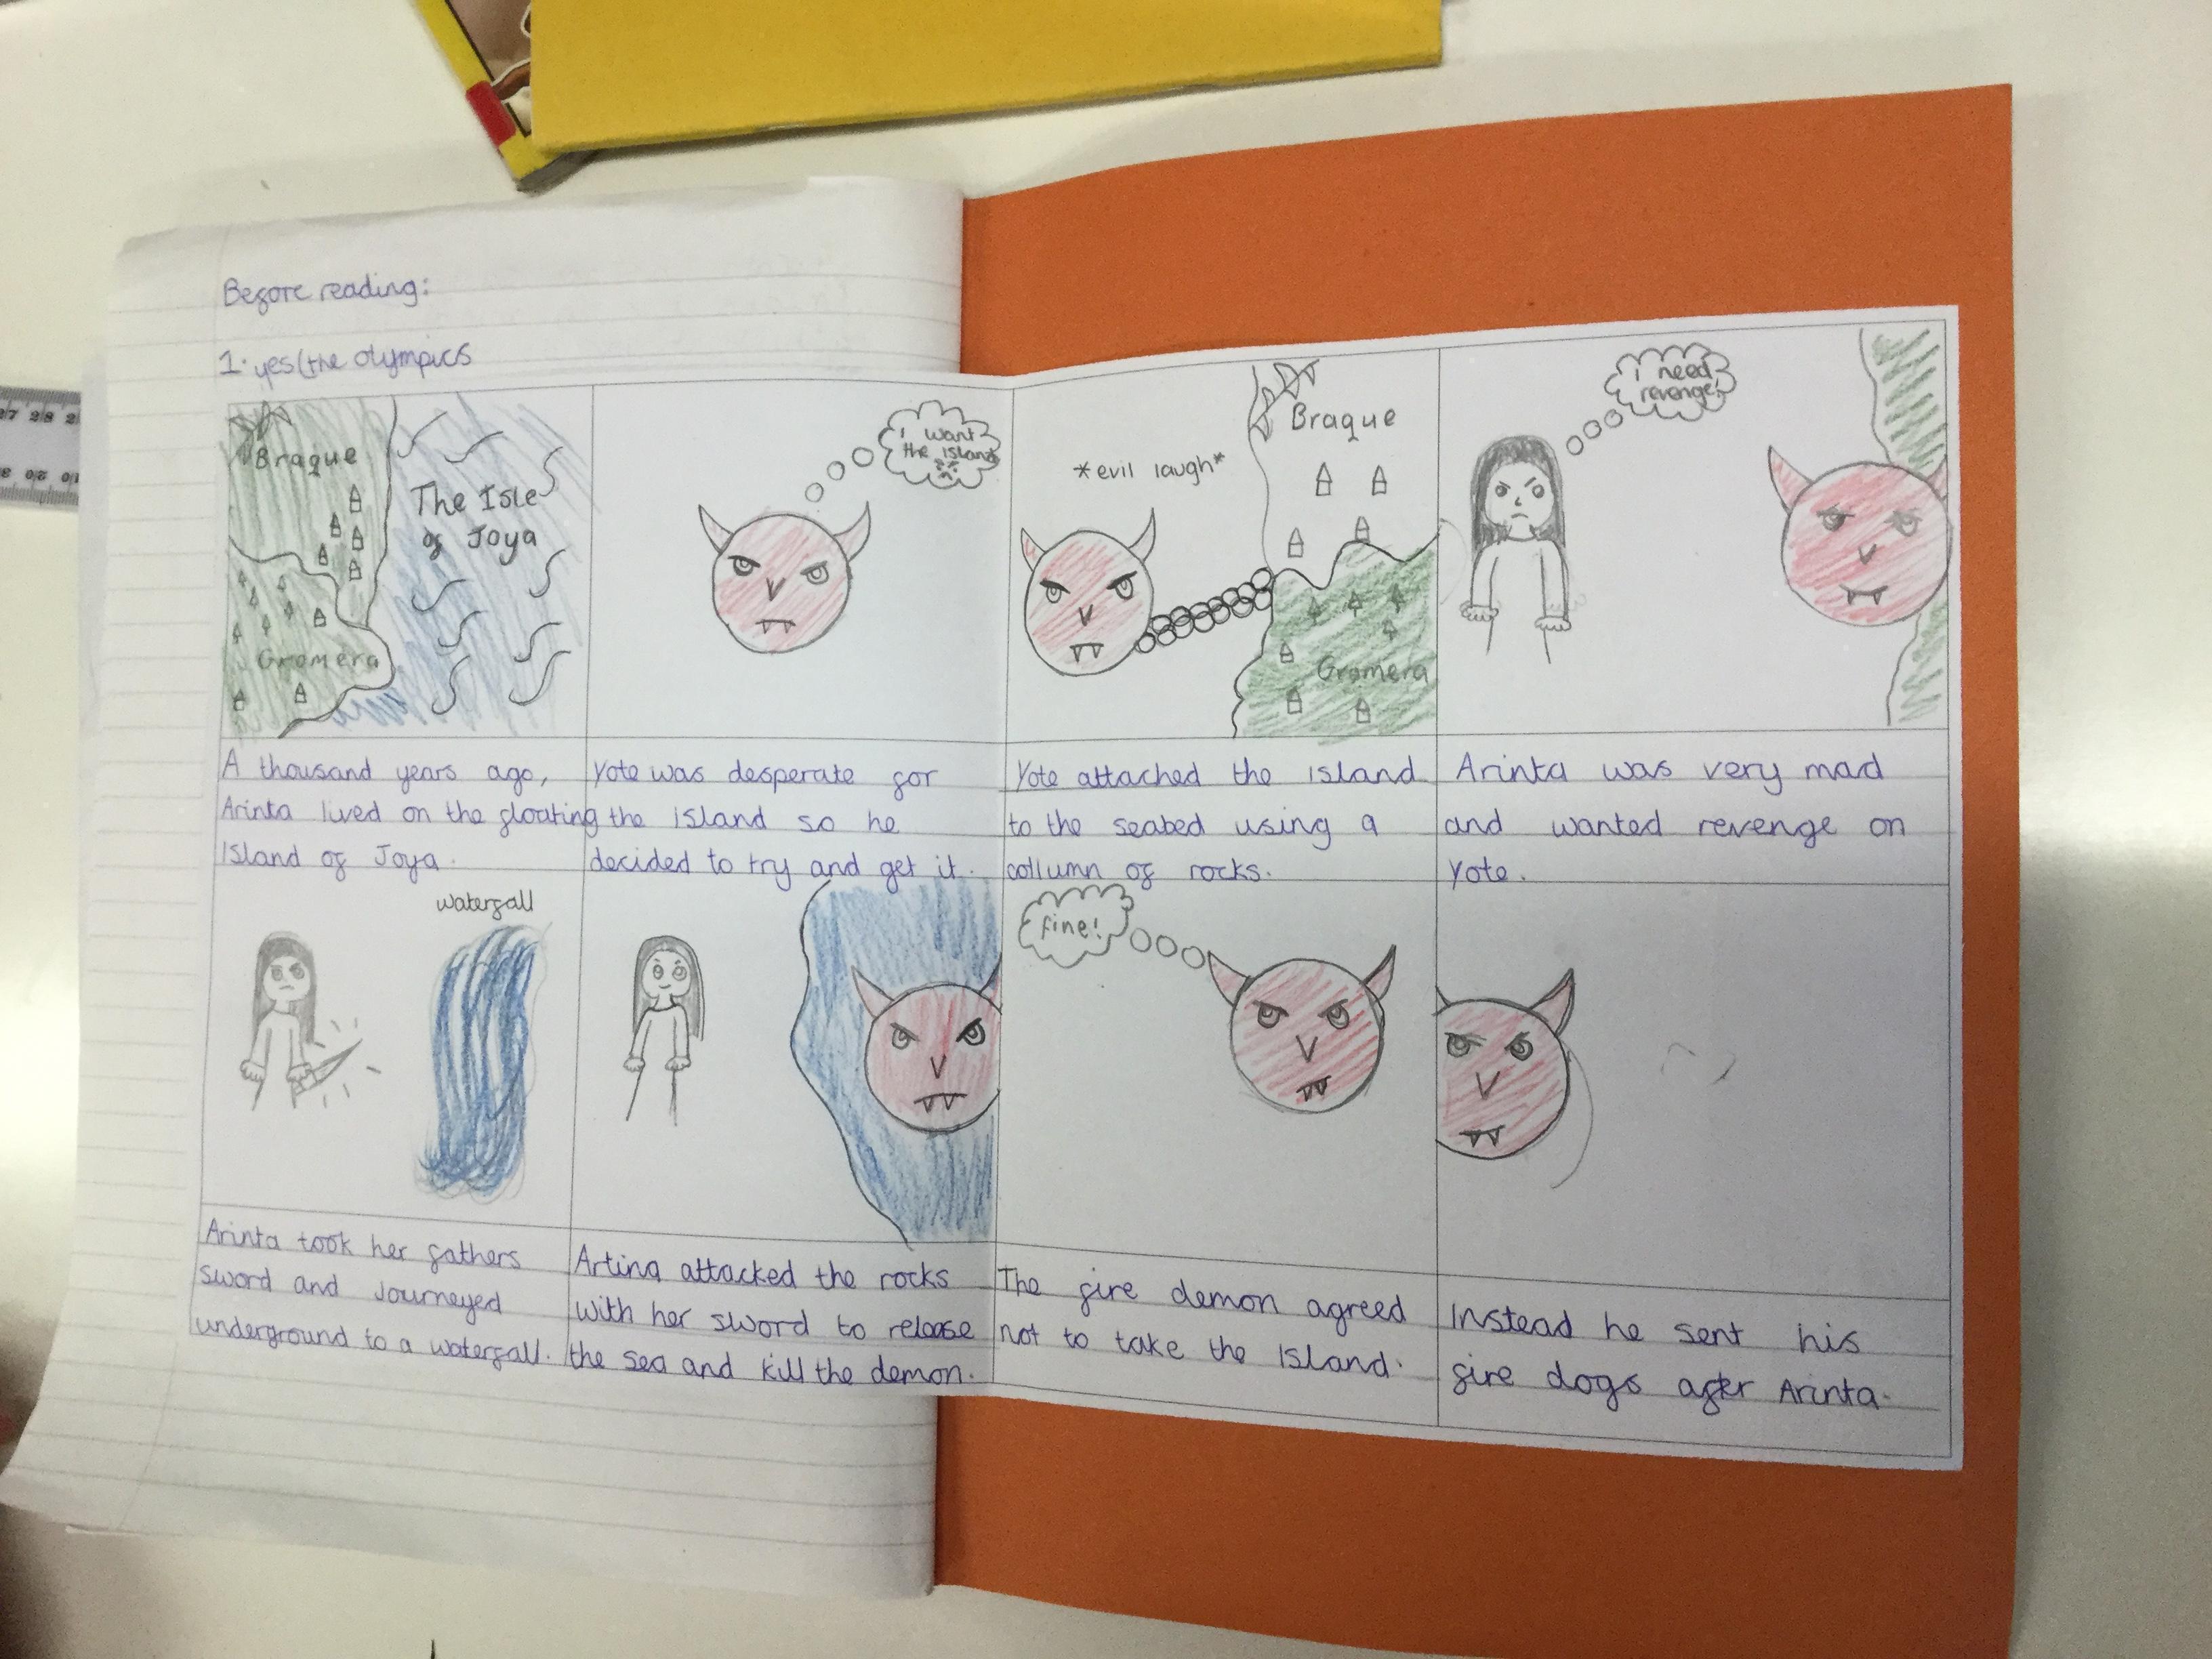 Before reading:
1. yes (the olympics
Braque
The Isle
of Joya
Gromera
I want
the island
*evil laugh*
Braque
Gromera
i need
revenge!
A thousand years ago,
Arinta lived on the floating
Island of Joya.
Yote was desperate for
the island so he
decided to try and get it.
Yote attached the island
to the seabed using a
collumn of rocks.
Arinta was very mad
and wanted revenge on
Yote.
waterfall
fine!
Arinta took her fathers
sword and journeyed
underground to a waterfall.
Artina attacked the rocks
with her sword to release
the sea and kill the demon.
The fire demon agreed
not to take the island.
Instead he sent his
fire dogs after Arinta.
27 28 2